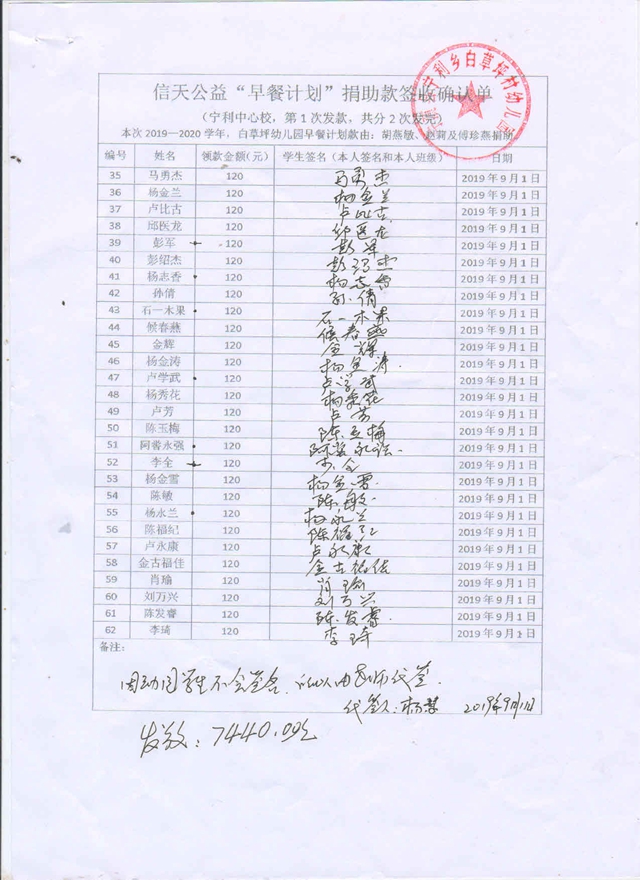 信天公益“早餐计划”捐助款签收确认单
（宁利中心校，第1次发款，共分2次发完）
本次2019—2020学年，白草坪幼儿园早餐计划款由：胡燕敏、赵莉及傅珍燕捐助
宁利乡白草坪村幼儿园
编号 姓名 领款金额（元） 学生签名（本人签名和本人班级） 日期
35 马勇杰 120 马勇杰 2019年9月1日
36 杨金兰 120 杨金兰 2019年9月1日
37 卢比古 120 卢比古 2019年9月1日
38 邱医龙 120 邱医龙 2019年9月1日
39 彭军 120 彭军 2019年9月1日
40 彭绍杰 120 彭绍杰 2019年9月1日
41 杨志香 120 杨志香 2019年9月1日
42 孙倩 120 孙倩 2019年9月1日
43 石一木果 120 石一木果 2019年9月1日
44 候春燕 120 候春燕 2019年9月1日
45 金辉 120 金辉 2019年9月1日
46 杨金涛 120 杨金涛 2019年9月1日
47 卢学武 120 卢学武 2019年9月1日
48 杨秀花 120 杨秀花 2019年9月1日
49 卢芳 120 卢芳 2019年9月1日
50 陈玉梅 120 陈玉梅 2019年9月1日
51 阿酱永强 120 2019年9月1日
52 李全 120 李全 2019年9月1日
53 杨金雪 120 杨金雪 2019年9月1日
54 陈敏 120 陈敏 2019年9月1日
55 杨永兰 120 杨永兰 2019年9月1日
56 陈福纪 120 陈福纪 2019年9月1日
57 卢永康 120 卢永康 2019年9月1日
58 金古福佳 120 金古福佳 2019年9月1日
59 肖瑜 120 肖瑜 2019年9月1日
60 刘万兴 120 刘万兴 2019年9月1日
61 陈发睿 120 陈发睿 2019年9月1日
62 李琦 120 李琦 2019年9月1日
备注：
因幼园学生不会签名，所以由老师代签
代签人：杨 2019年9月1日
发放：7440.00元